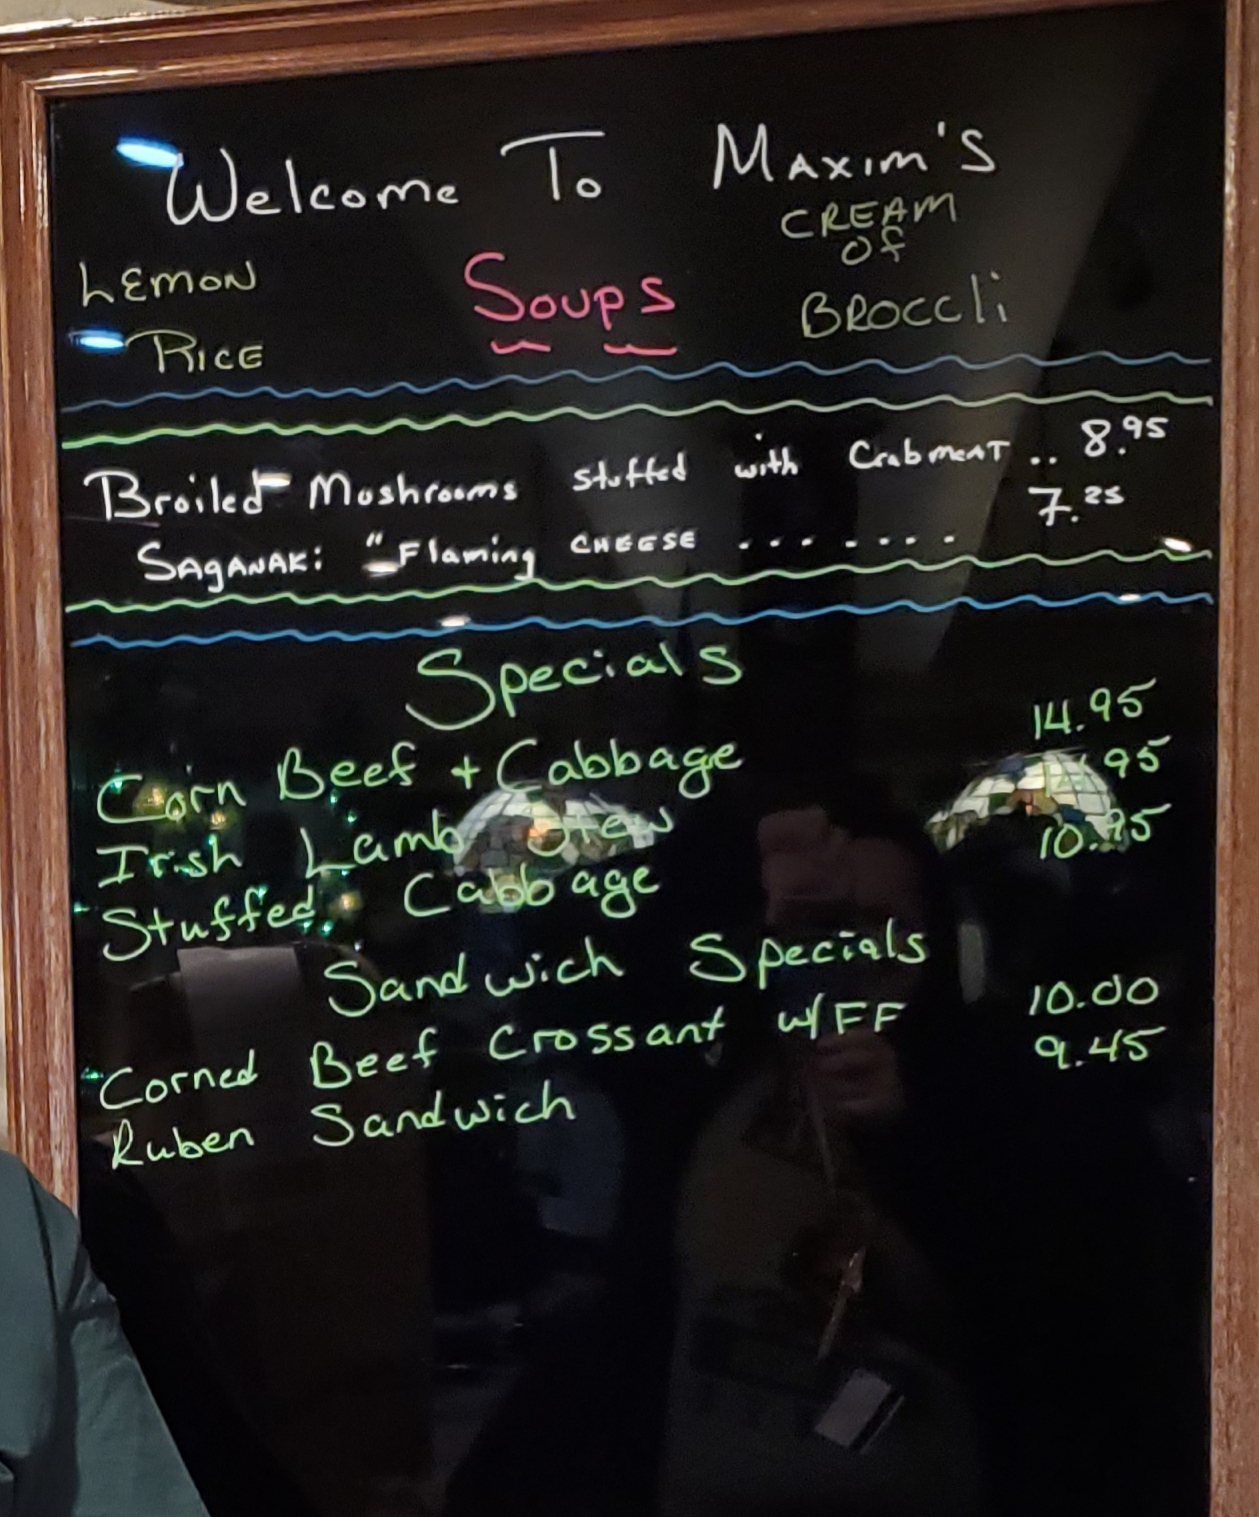 Welcome To Maxim's
Lemon Rice
Soups
CREAM of BROCCLi
Broiled Mushrooms stuffed with Crabmeat .. 8.95
SAgANAKi "Flaming CHEESE ........ 7.25
Specials
Corn Beef + Cabbage 14.95
Irish Lamb Stew
Stuffed Cabbage 10.95
Sandwich Specials
Corned Beef Crossant w/FF 10.00
Ruben Sandwich 9.45